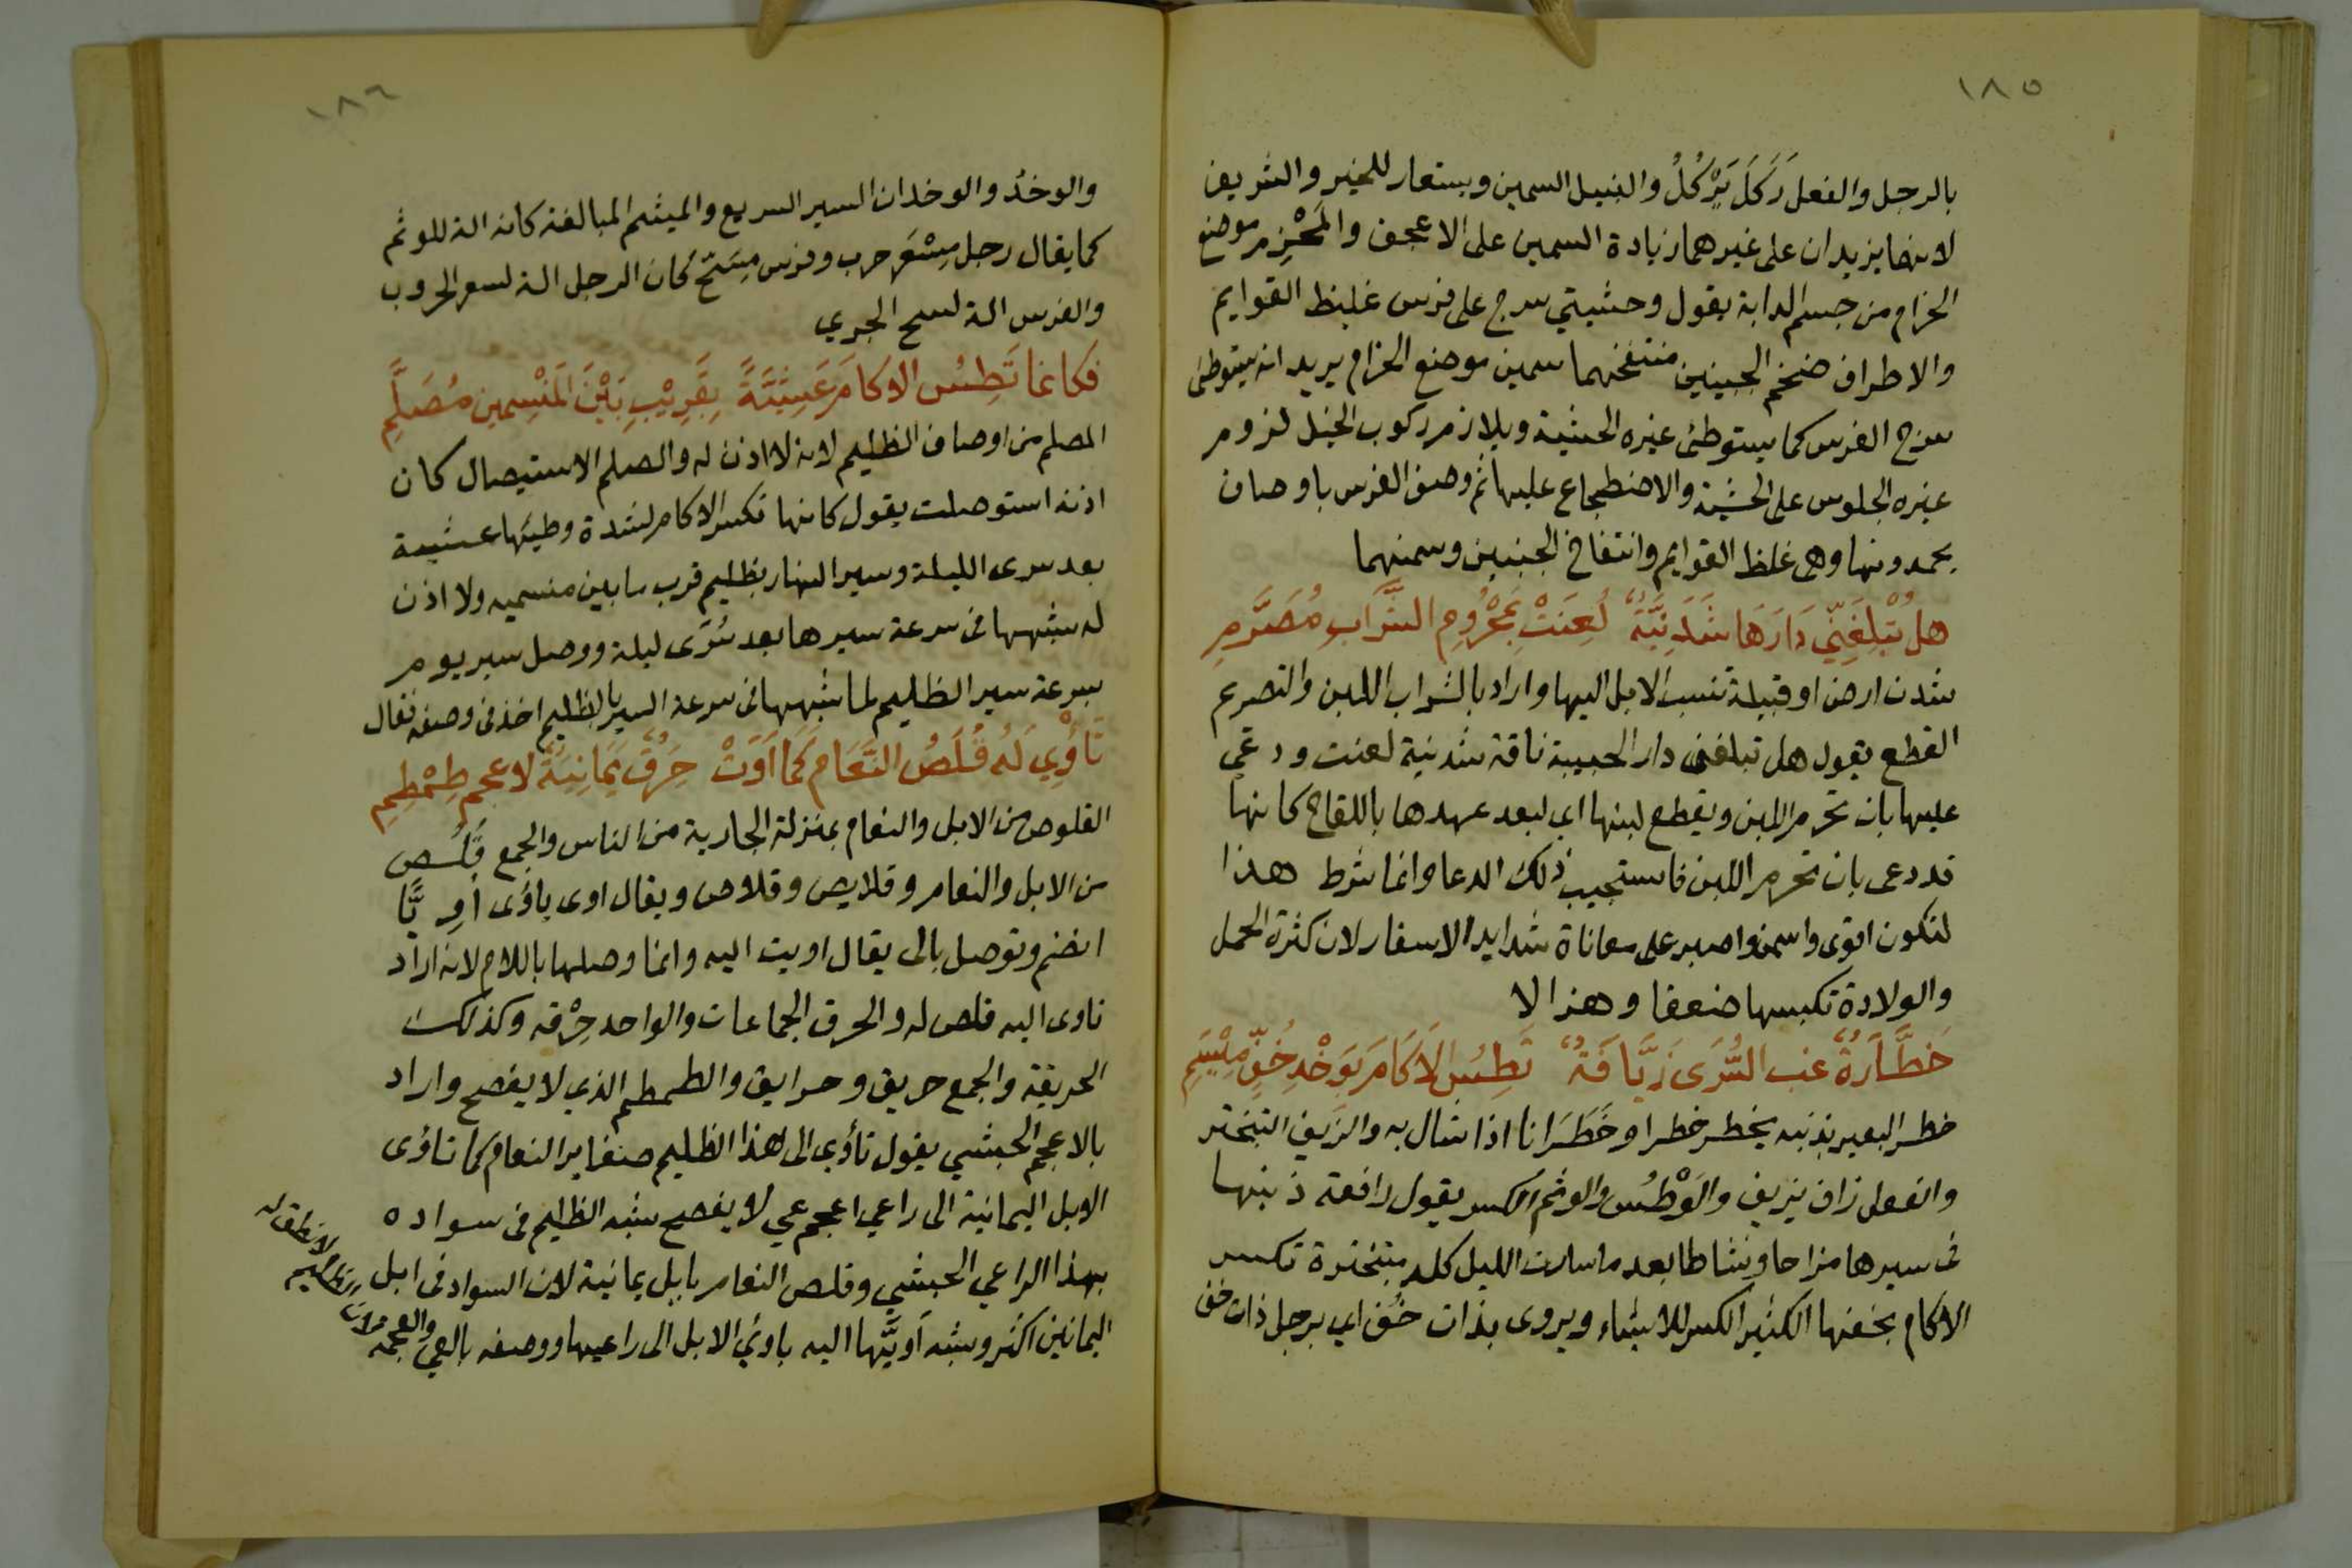 ١٨٥
بالرجل والفعل رَكَلَ يَرْكُلُ والنبيل السمين ويستعار للخير والشريف
لانهما يزيدان على غيرهما زيادة السمين على الاعجف والمَحْزِم موضع
الحزام من جسم الدابة يقول وحشيتي سرج على فرس غليظ القوايم
والاطراف ضخم الجنبين منتفخهما سمين موضع الحزام يريد انه يستوطئ
سرج الفرس كما يستوطئ غيره الحشية ويلازم ركوب الخيل لزوم
غيره الجلوس على الحشية والاضطجاع عليها ثم وصف الفرس باوصاف
يحمدونها وهى غلظ القوايم وانتفاخ الجنبين وسمنهما
هل تُبْلِغَنِّي دَارَهَا شَدَنِيَّةٌ لُعِنَتْ بِمَحْرُومِ الشَّرَابِ مُصَرَّمِ
شدن ارض او قبيلة تنسب الابل اليها واراد بالشراب اللبن والتصريم
القطع يقول هل تبلغني دار الحبيبة ناقة شدنية لعنت ودعي
عليها بان تحرم اللبن ويقطع لبنها اي لبعد عهدها باللقاح كانها
قد دعى بان تحرم اللبن فاستجيب ذلك الدعا وانما شرط هذا
لتكون اقوى واسمن واصبر على معاناة شدايد الاسفار لان كثرة الحمل
والولادة تكبسها ضعفا وهزالا
خَطَّارَةٌ غب السُّرَى زَيَّافَةٌ تَطِسُ الاَكَامَ بِوَخْدِ خُفٍّ مِيْثَمِ
خطر البعير بذنبه يخطر خطرا وخَطَرَانا اذا شال به والزيف التبختر
والفعل زاف يزيف والوَطْسُ والوثم الكسر يقول رافعة ذنبها
فى سيرها مزاحا ونشاطا بعد ما سارت الليل كله متبخترة تكسر
الاكام بخفها الكثير الكسر للاشياء ويروى بذات خُف اي برجل ذات خف
١٨٦
والوخدُ والوخدان السير السريع والميثم المبالغة كانه الة للوثم
كما يقال رجل مِسْعَر حرب وفرس مِسَحّ كان الرجل الة لسعر الحروب
والفرس الة لسح الجري
فكانما تَطِسُ الاكامَ عَشِيَّةً بِقَرِيْبِ بَيْنَ المَنْسِمين مُصَلَّمِ
المصلم من اوصاف الظليم لانه لا اذن له والصلم الاستيصال كان
اذنه استوصلت يقول كانها تكسر الاكام لشدة وطيها عشية
بعد سرى الليلة وسير النهار بظليم قرب ما بين منسميه ولا اذن
له شبهها فى سرعة سيرها بعد سُرَى ليلة ووصل سير يوم
بسرعة سير الظليم لما شبهها فى سرعة السير بالظليم اخذ فى وصفه فقال
تَأْوِي لَهُ قُلُصُ النَّعَام كَمَا اَوَتْ حِزَقٌ يَمَانِيَةٌ لاعجم طِمْطِمِ
القلوص من الابل والنعام بمنزلة الجارية من الناس والجمع قُلُص
من الابل والنعام وقلايص وقلاص ويقال اوى ياوى أوِيًّا
انضم وتوصل بالى يقال اويت اليه وانما وصلها باللام لانه اراد
تاوى اليه قلص له والحزق الجماعات والواحد حِزْقه وكذلك
الحزيقة والجمع حزيق وحزايق والطمطم الذي لا يفصح واراد
بالاعجم الحبشي يقول تأوي الى هذا الظليم صغاير النعام كما تاوى
الابل اليمانية الى راعي اعجم عي لا يفصح شبه الظليم فى سواده
بهذا الراعي الحبشي وقلص النعام بابل يمانية لان السواد فى ابل
اليمانين اكثر وشبه اَويَّها اليه باوي الابل الى راعيها ووصفه بالعي والعجمه لان
الظليم لا نطق له